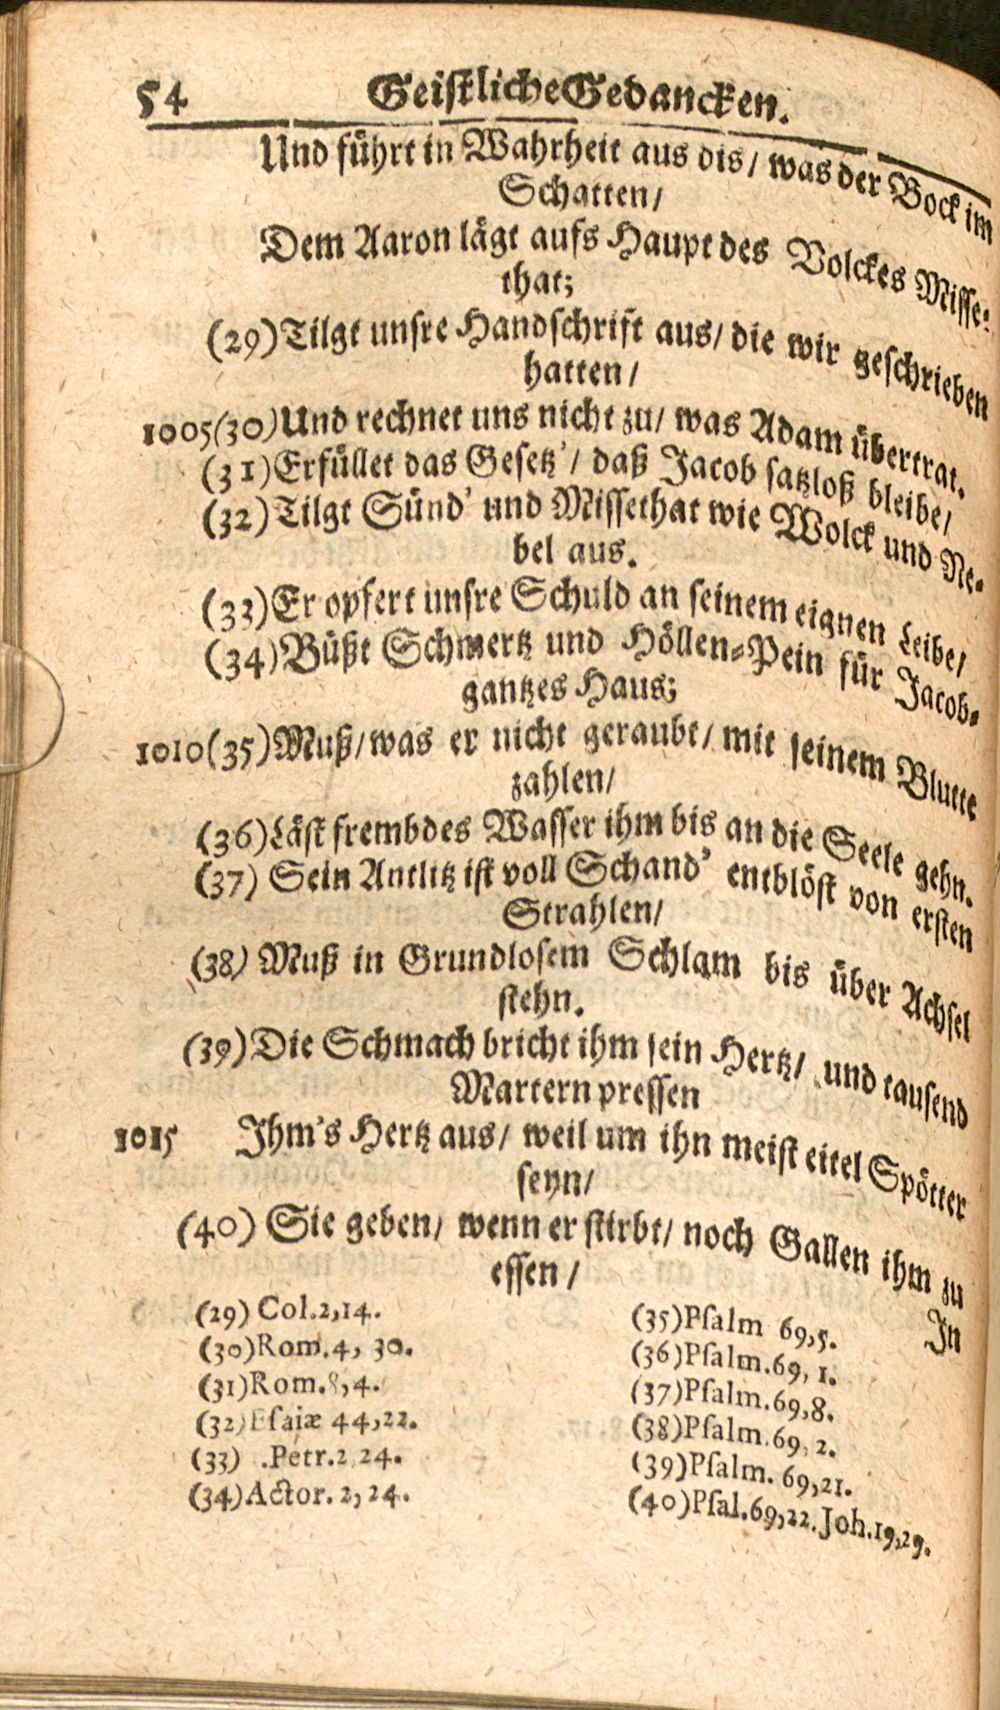 54 Geistliche Gedancken.
Und führt in Wahrheit aus dis / was der Bock im
Schatten /
Dem Aaron lägt aufs Haupt des Volckes Misse-
that;
(29) Tilgt unsre Handschrift aus / die wir geschrieben
hatten /
1005 (30) Und rechnet uns nicht zu / was Adam übertrat.
(31) Erfüllet das Gesetz' / daß Jacob satzloß bleibe /
(32) Tilgt Sünd' und Missethat wie Wolck und Ne-
bel aus.
(33) Er opfert unsre Schuld an seinem eignen Leibe /
(34) Büßt Schmertz und Höllen-Pein für Jacob-
gantzes Haus;
1010 (35) Muß / was er nicht geraubt / mit seinem Blutte
zahlen /
(36) Läst frembdes Wasser ihm bis an die Seele gehn.
(37) Sein Antlitz ist voll Schand' entblöst von ersten
Strahlen /
(38) Muß in Grundlosem Schlam bis über Achsel
stehn.
(39) Die Schmach bricht ihm sein Hertz / und tausend
Martern pressen
1015 Ihm's Hertz aus / weil um ihn meist eitel Spötter
seyn /
(40) Sie geben / wenn er stirbt / noch Gallen ihm zu
essen /
In
(29) Col.2,14.
(30) Rom.4, 30.
(31) Rom.8,4.
(32) Esaiæ 44,22.
(33) .Petr.2 24.
(34) Actor. 2, 24.
(35) Psalm 69,5.
(36) Psalm.69, 1.
(37) Psalm.69,8.
(38) Psalm.69, 2.
(39) Psalm. 69,21.
(40) Psal.69,22. Joh.19,29.